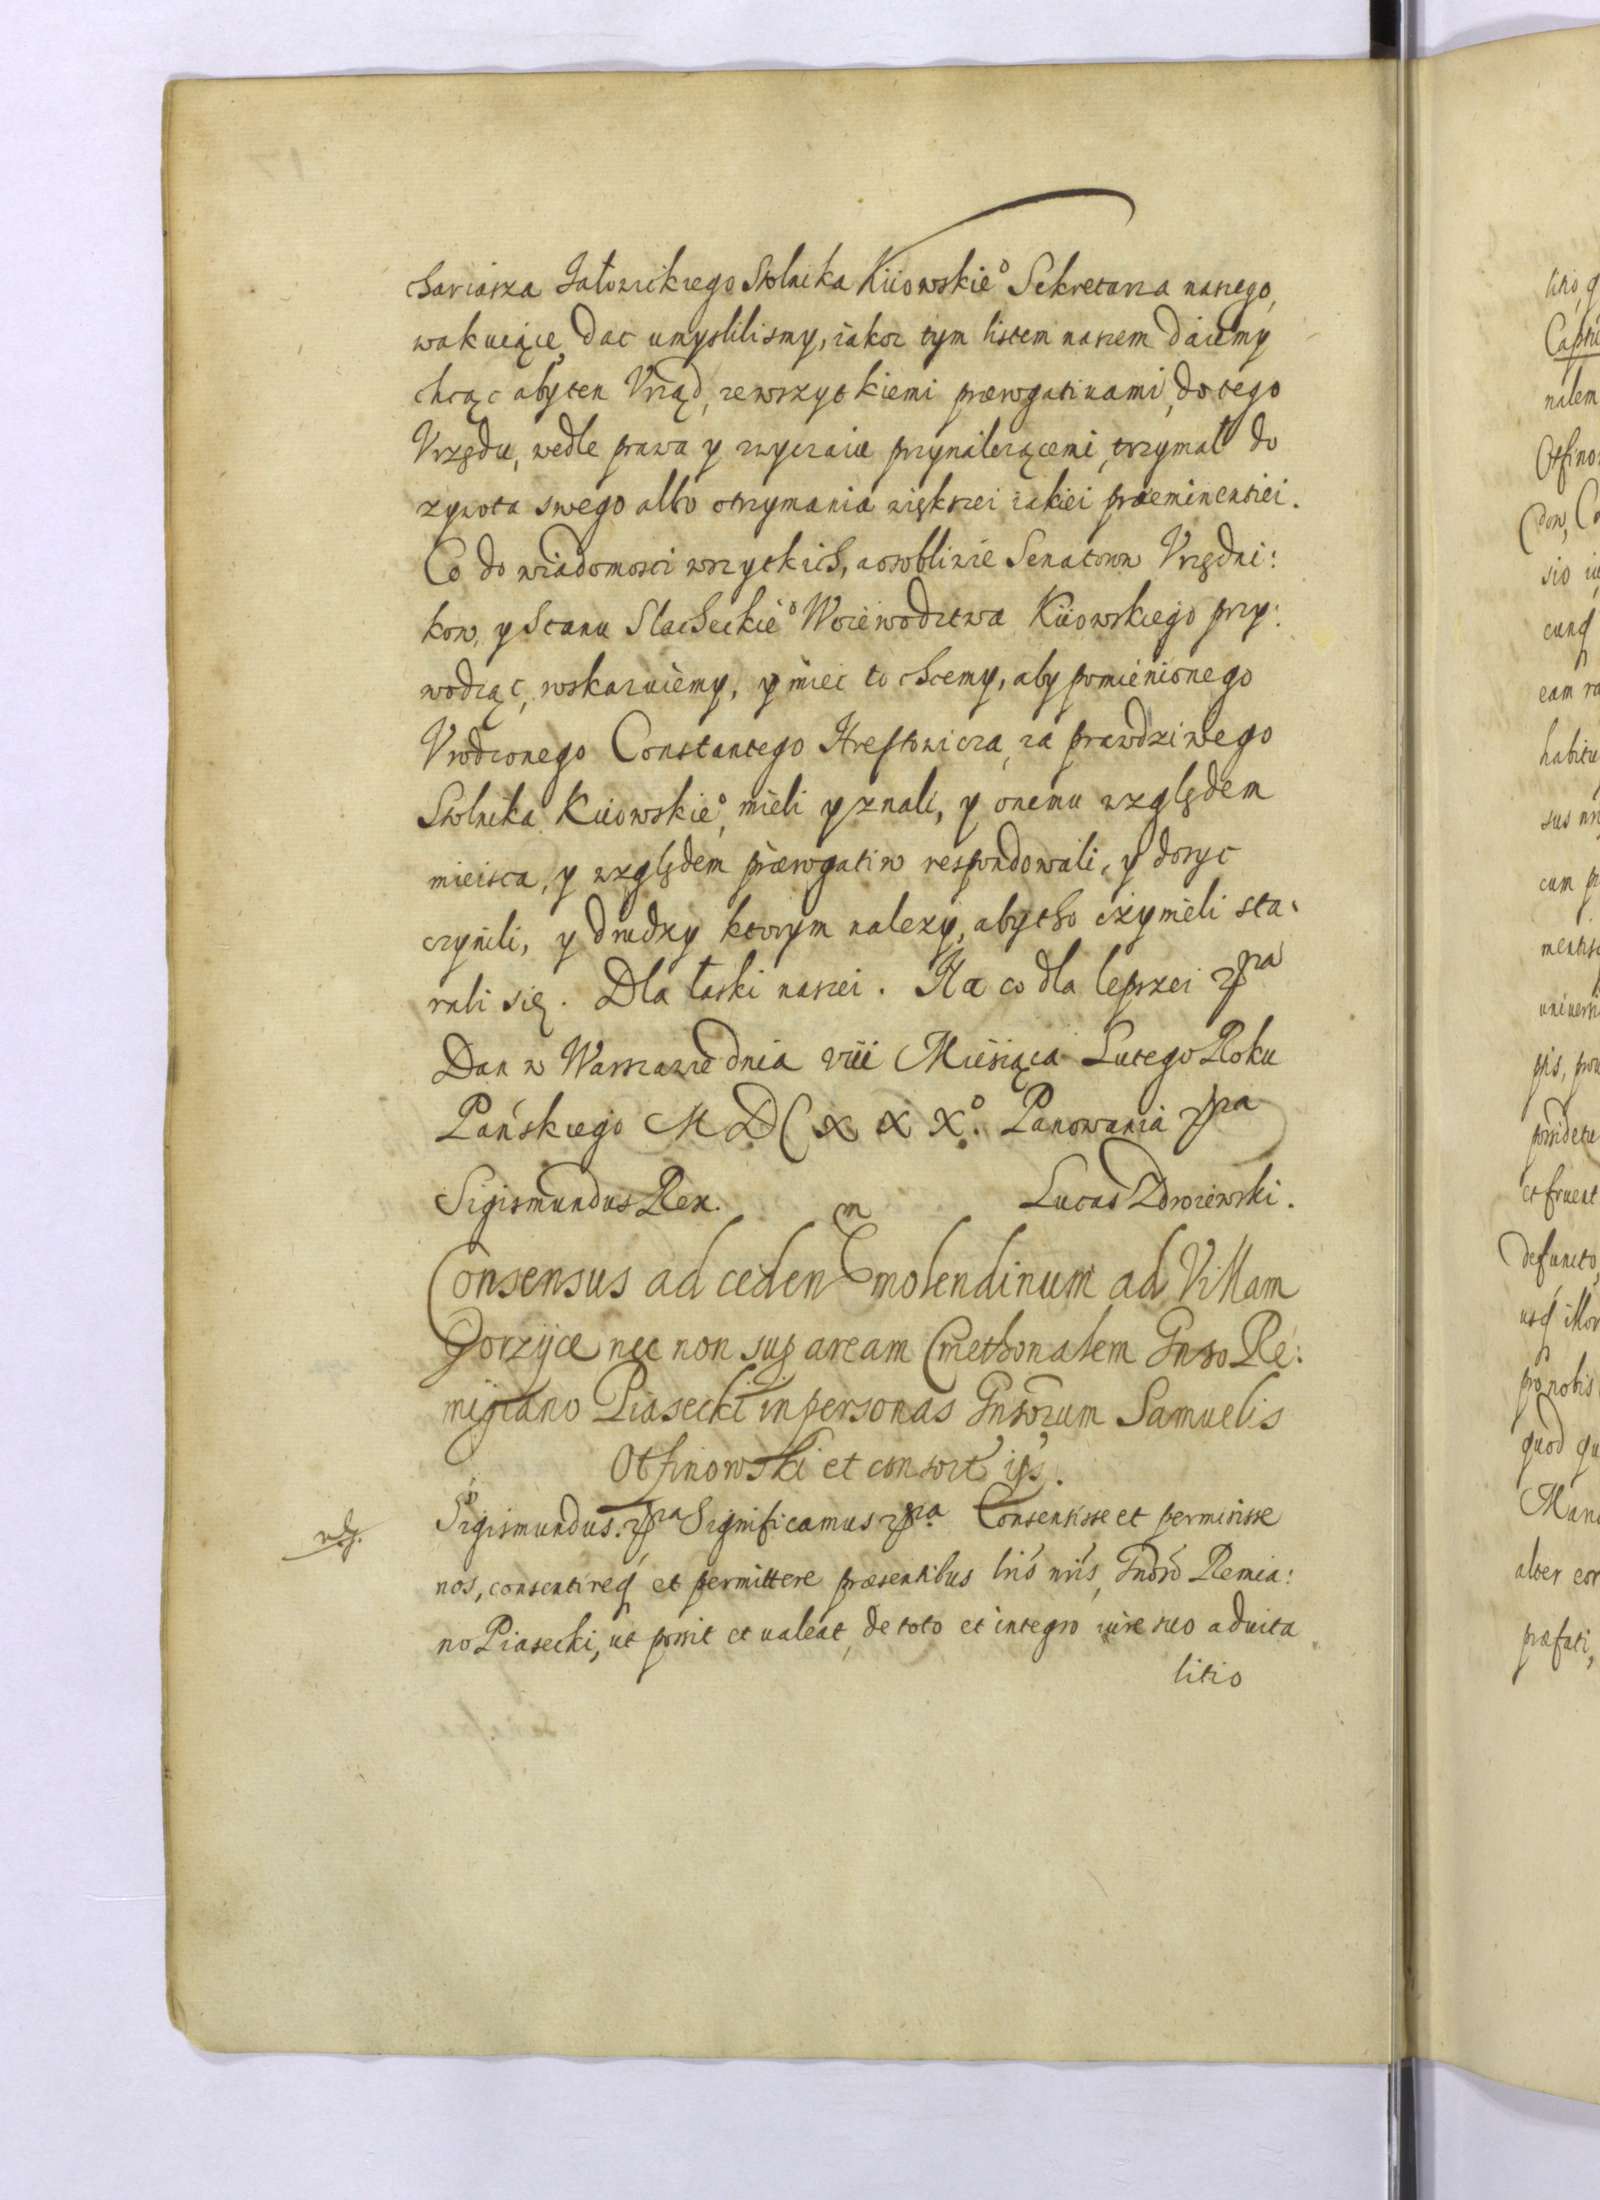 chariasza Jałowickiego Stolnika Kiiowskieº Sekretarza naszego,
wakuiące, dac umyslilismy, iakoz tym listem naszem daiemy
chcąc abyten Vrząd, zewszytkiemi prærogatiuami, do tego
Vrzędu, wedle prawa y zwyczaiu przynalezącemi, trzymał do
zywota swego albo otrzymania większei iakiei præeminentiei.
Co do wiadomosci wszytkich, aosobliwie Senatorow Vrzędni:
kow, y Stanu Slacheckieº Woiewodztwa Kiiowskiego przy:
wodząc, wskazuiemy, y miec to chcemy, aby pomienionego
Vrodzonego Constantego Hreskowicza, za prawdziwego
Stolnika Kiiowskieº, mieli y znali, y onemu względem
mieisca, y względem prærogatiw respondowali, y dosyc
czynili, y drudzy ktorym nalezy, abytho czymieli sta:
rali się. Dla łaski naszei. Na co dla lepszei etc
Dan w Warszawie dnia viii Miesiąca Lutego Roku
Pańskiego MDCXXXº. Panowania etc
Sigismundus Rex. Lucas Zdroiewski.
Consensus ad ceden^m molendinum ad Villam
Gorzyce nec non sup aream Cmethonalem Gnso Re:
migiano Piasecki in personas Gnsorum Samuelis
Otfinowski et consort ips.
Sigismundus. etc Significamus etc Consensisse et permisisse
nos, consentireq et permittere præsentibus lris nris, Gnoso Remia:
no Piasecki, ut possit et ualeat, de toto et integro iure suo aduita
litio